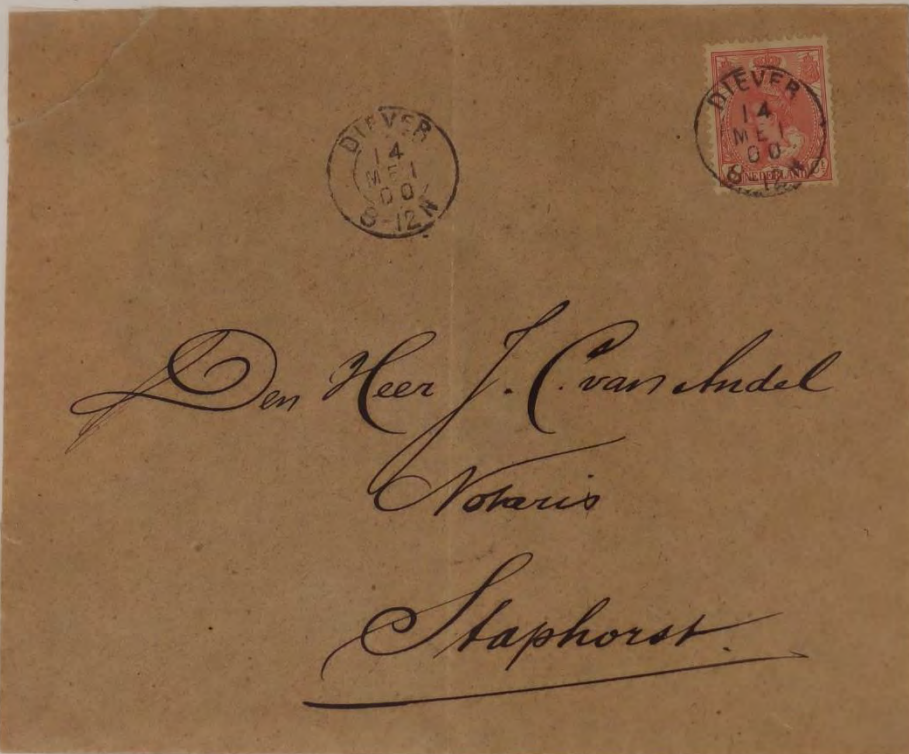 DIEVER
14
MEI
00
8-12N
DIEVER
14
MEI
00
8-12N
NEDERLAND
Den Heer J. C. van Andel
Notaris
Staphorst.